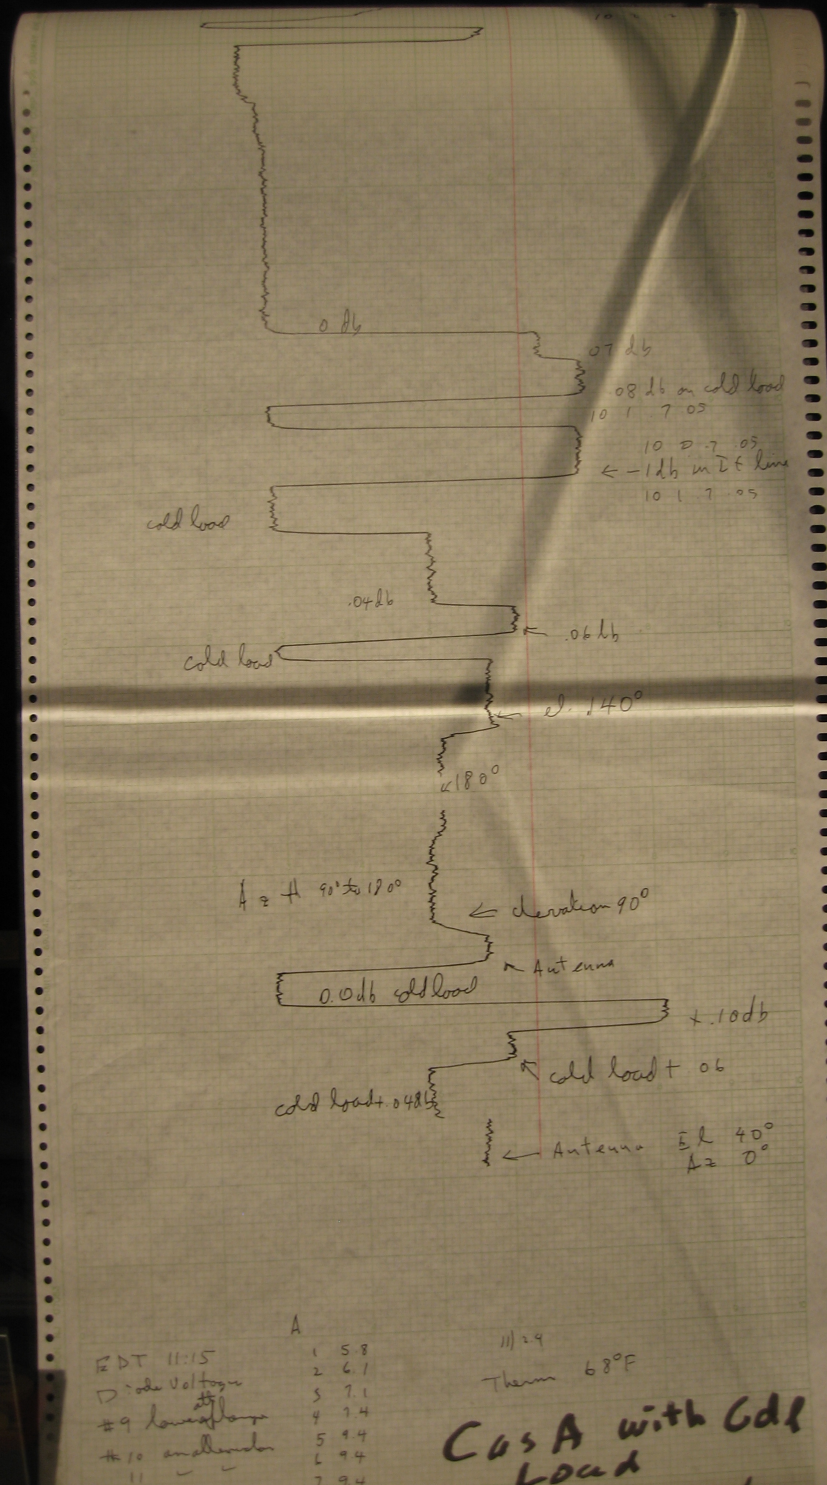 0 db
07 db
08 db on cold load
10 1 7 05
10 0 7 05
← -1db in If line
10 1 7 05
cold load
.04db
← .06db
cold load
← el. 140°
← 180°
Az 90° to 180°
← elevation 90°
← Antenna
0.0db cold load
+.10db
cold load + 06
cold load + .04db
← Antenna El 40°
Az 0°
A
EDT 11:15
1 5.8
11/24
Diode Voltage
2 6.1
Therm 68°F
3 7.1
#9
4 7.4
5 9.4
#10
6 9.4
11
7 9.4
Cas A with Cdl
Load